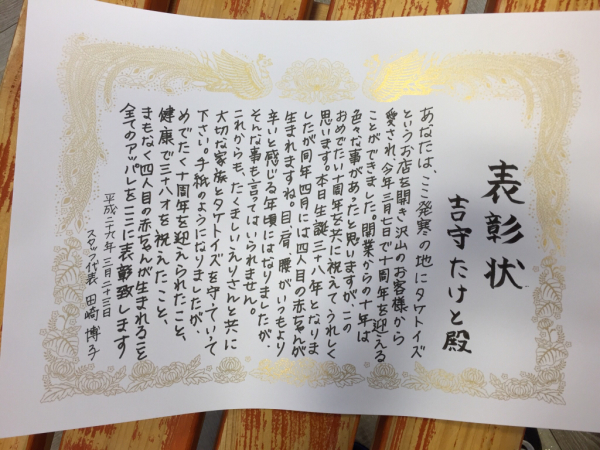 表彰状
吉守たけと殿
あなたは、ここ発寒の地にタケトイズ
というお店を開き沢山のお客様から
愛され、今年三月七日で十周年を迎える
ことができました。開業からの十年は
色々な事があったと思いますが、この
おめでたい十周年を共に祝えてうれしく
思います。本日生誕三十八年となりま
したが同年四月には四人目の赤ちゃんが
生まれますね。目、肩、腰がいつもより
辛いと感じる年頃にはなりましたが、
そんな事も言ってはいられません。
これからも、たくましいえりさんと共に
大切な家族とタケトイズを守っていて
下さい。手紙のようになりましたが、
めでたく十周年を迎えられたこと、
健康で三十八才を祝えたこと、
まもなく四人目の赤ちゃんが生まれること
全てのアッパレをここに表彰致します
平成二十六年三月二十三日
スタッフ代表 田崎博子